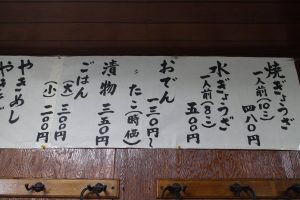 焼ぎょうざ
一人前(10ニ)
四八〇円
水ぎょうざ
一人前(8ニ)
五〇〇円
おでん
一三〇円〜
たこ(時価)
漬物 三五〇円
ごはん
(大)三〇〇円
(小)二〇〇円
やきめし